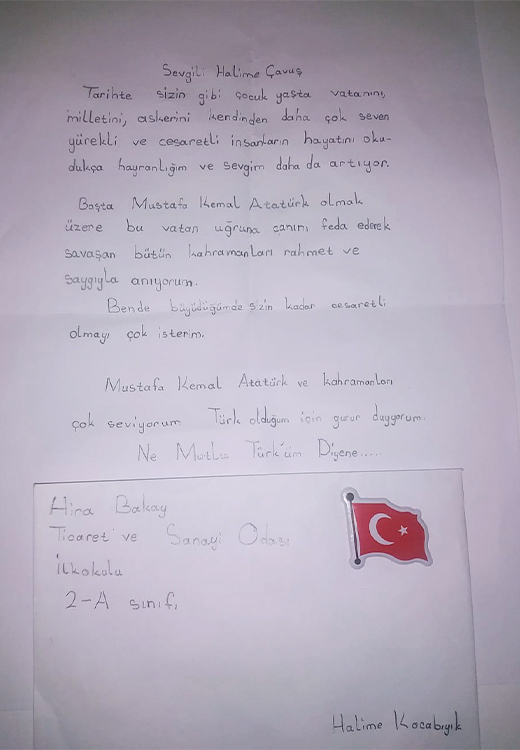 Sevgili Halime Çavuş
Tarihte sizin gibi çocuk yaşta vatanını,
milletini, askerini kendinden daha çok seven
yürekli ve cesaretli insanların hayatını oku-
dukça hayranlığım ve sevgim daha da artıyor.
Başta Mustafa Kemal Atatürk olmak
üzere bu vatan uğruna canını feda ederek
savaşan bütün kahramanları rahmet ve
saygıyla anıyorum.
Bende büyüdüğümde sizin kadar cesaretli
olmayı çok isterim.
Mustafa Kemal Atatürk ve kahramanları
çok seviyorum Türk olduğum için gurur duyuyorum.
Ne Mutlu Türk'üm Diyene.....
Hira Bakay
Ticaret ve Sanayi Odası
İlkokulu
2-A sınıfı
Halime Kocabıyık